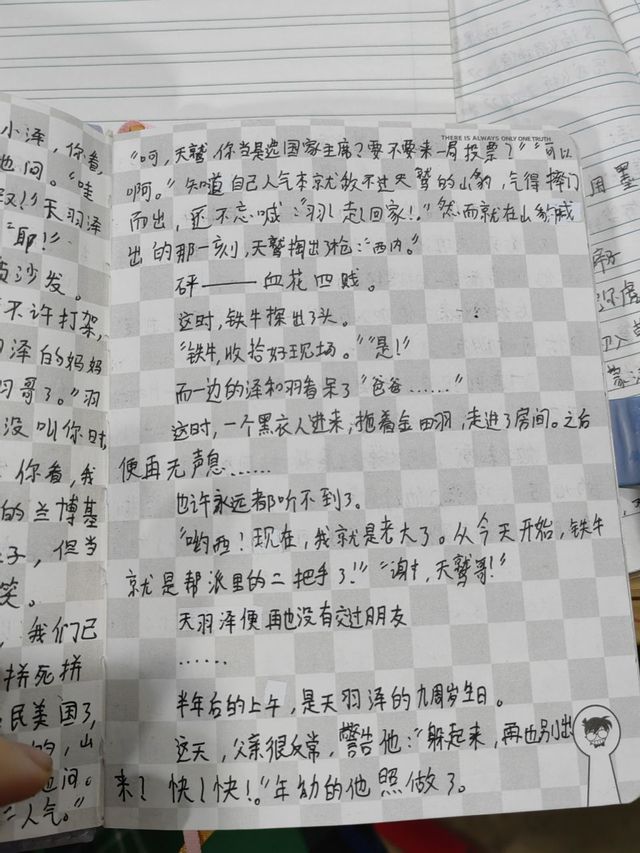 小泽，你看，
也问。“哇
天羽泽
“耶！”
沙发。
不许打架，
泽的妈妈
羽哥了。”羽
没叫你时，
你看，我
的兰博基
子，但当
笑。
我们已
拼死拼
民美国了，
的，山
问。
人气。”
THERE IS ALWAYS ONLY ONE TRUTH
“呵，天鹫，你当是选国家主席？要不要来一局投票？”“可以
啊。”知道自己人气本就敌不过天鹫的山豹，气得摔门
而出，还不忘喊：“羽！走！回家！。”然而就在山豹甩
出的那一刻，天鹫掏出枪：“西内。”
砰——血花四贱。
这时，铁牛探出了头。
“铁牛，收拾好现场。”“是！”
而一边的泽和羽看呆了“爸爸……”
这时，一个黑衣人进来，拖着金田羽，走进了房间。之后
便再无声息……
也许永远都听不到了。
“哟西！现在，我就是老大了。从今天开始，铁牛
就是帮派里的二把手了！”“谢，天鹫哥！”
天羽泽便再也没有交过朋友
……
半年后的上午，是天羽泽的九周岁生日。
这天，父亲很反常，警告他：“躲起来，再也别出
来！快！快！。”年幼的他照做了。
用墨